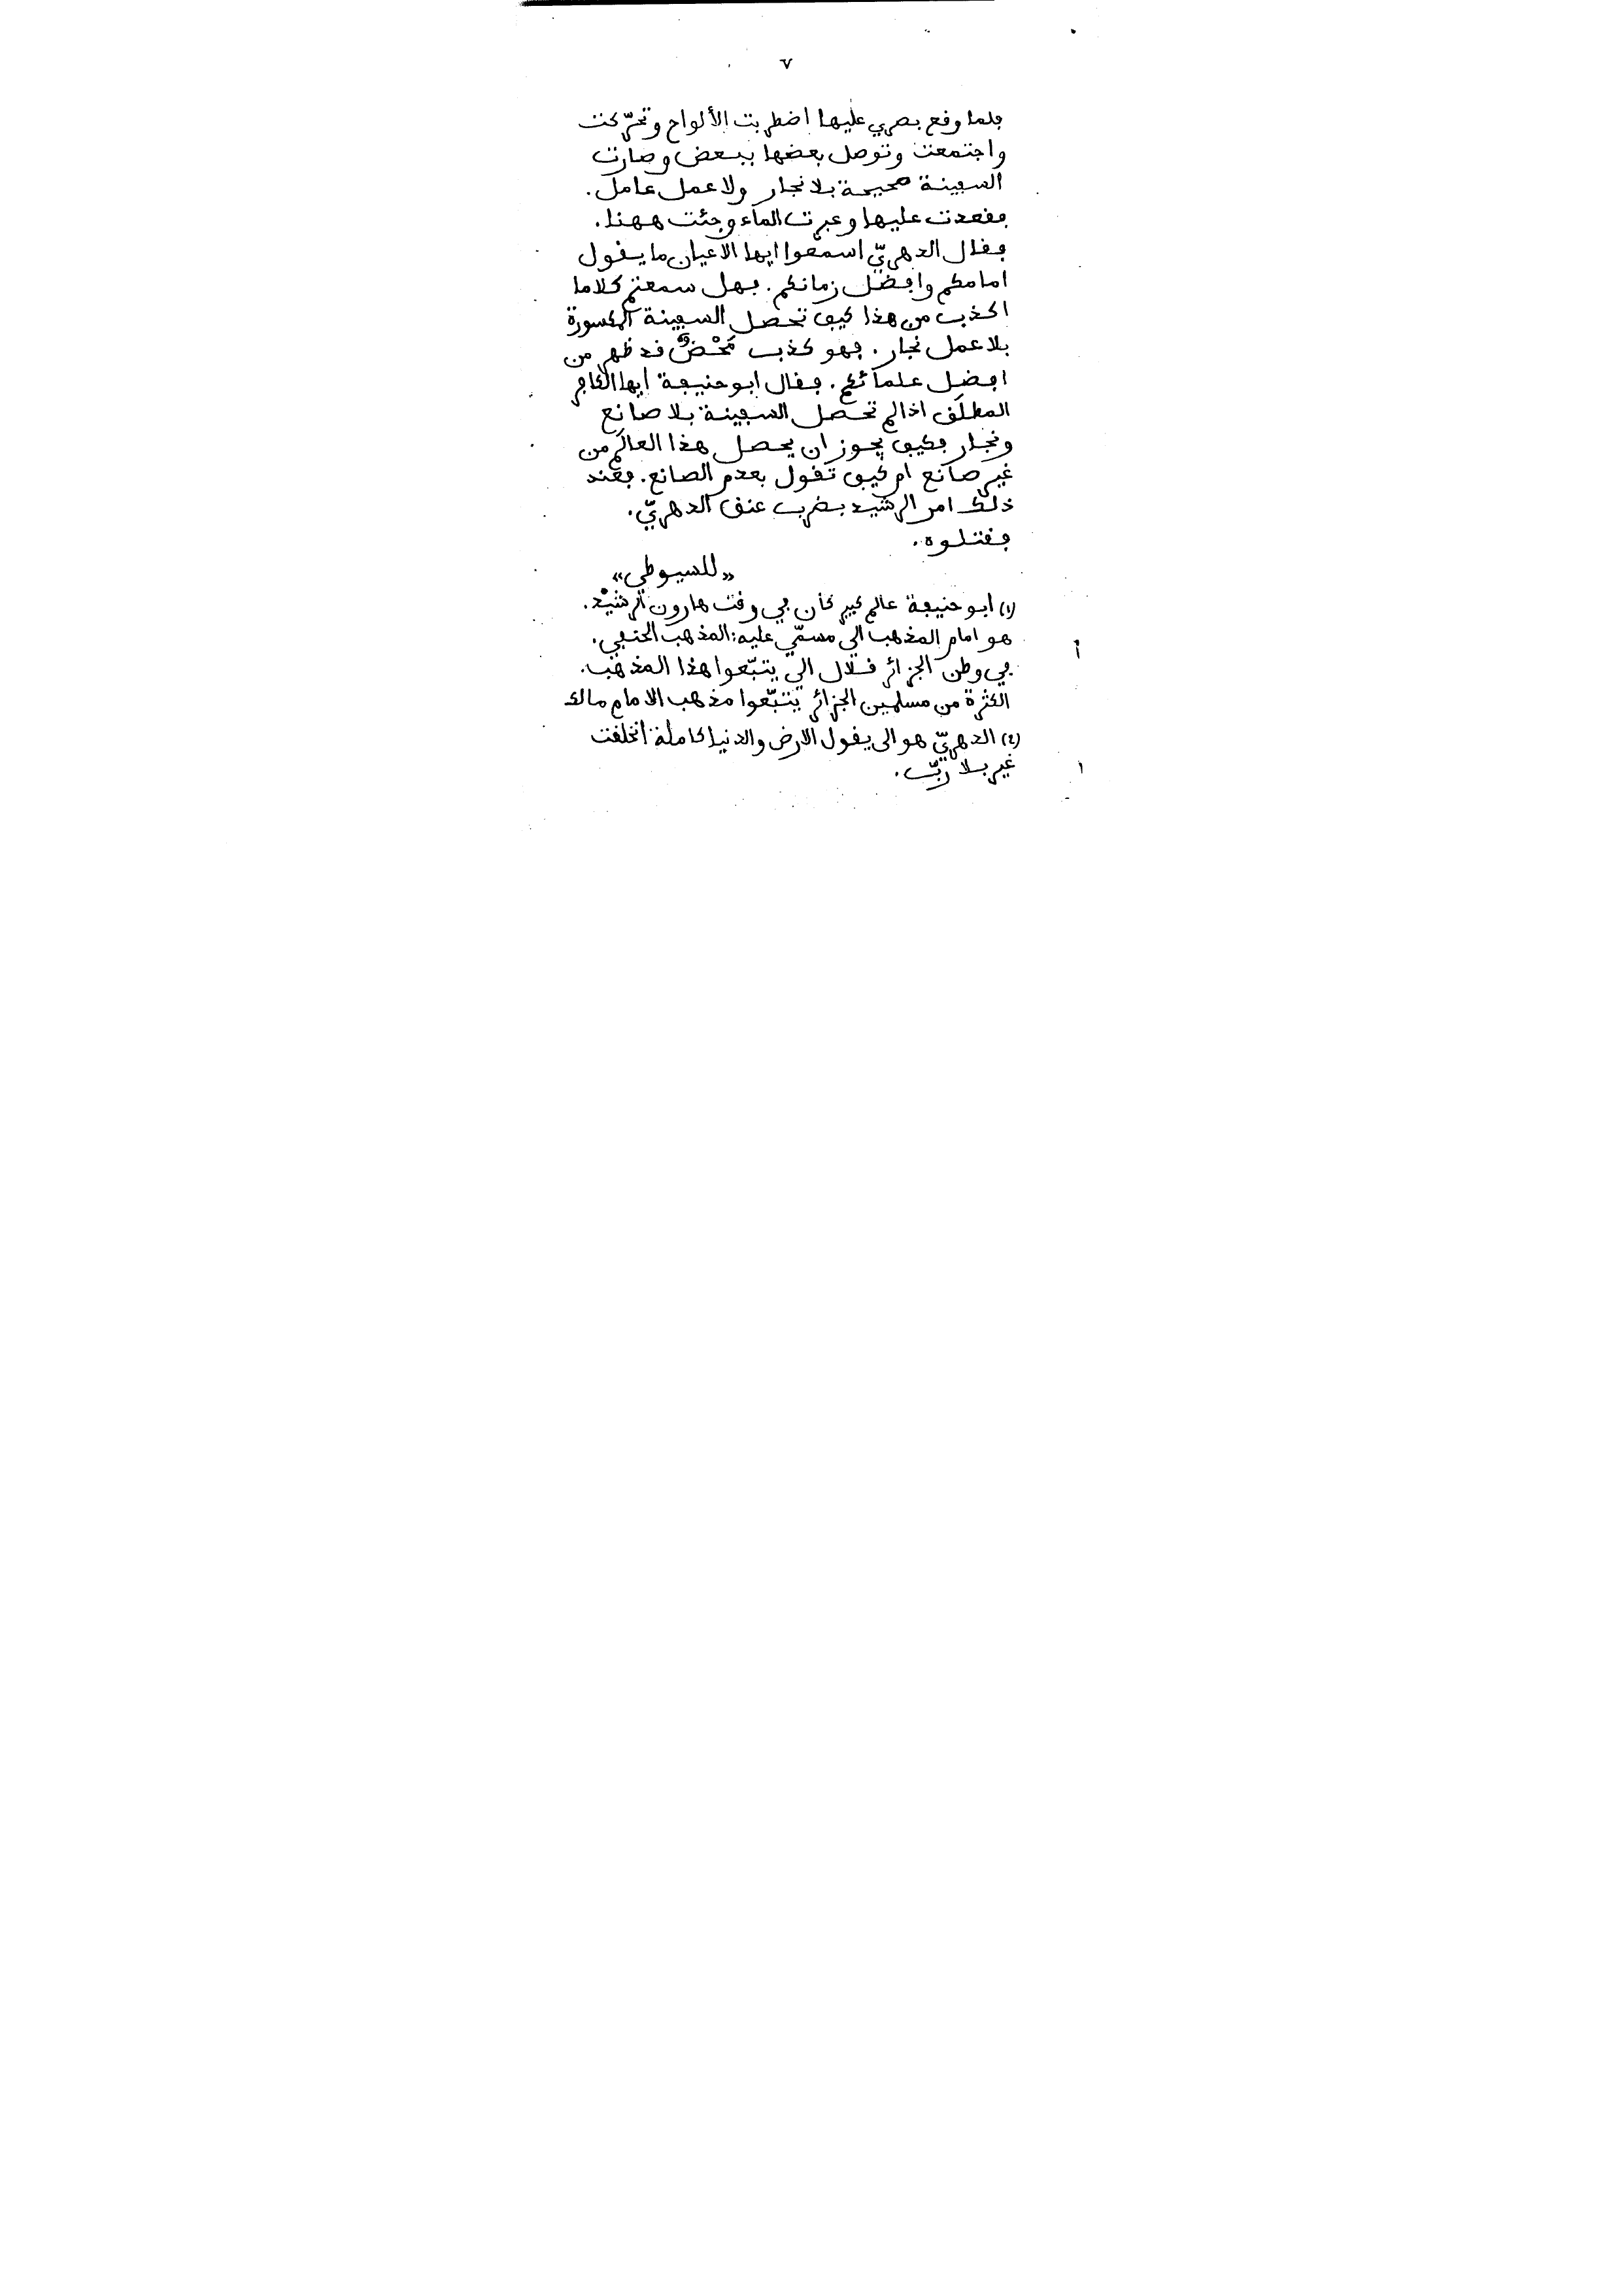 ٧
فلما وقع بصري عليها اضطربت الألواح وتحرّكت
واجتمعت وتوصل بعضها ببعض وصارت
السفينة صحيحة بلا نجار ولا عمل عامل.
فقعدت عليها وعبرت الماء وجئت ههنا.
فقال الدهريّ اسمعوا ايها الاعيان ما يقول
امامكم وافضل زمانكم. فهل سمعتم كلاما
اكذب من هذا كيف تحصل السفينة المكسورة
بلا عمل نجار. فهو كذب مَحْضٌ قد ظهر من
افضل علمائكم. فقال ابو حنيفة ايها الكافر
المطلَق اذا لم تحصل السفينة بلا صانع
ونجار فكيف يجوز ان يحصل هذا العالَم من
غير صانع ام كيف تقول بعدم الصانع. فعند
ذلك امر الرشيد بضرب عنق الدهريّ.
فقتلوه.
«للسيوطي»
(١) ابو حنيفة عالم كبير كان في وقت هارون الرشيْد.
هو امام المذهب الي مسمّي عليه: المذهب الحنفي.
في وطن الجزائر قلال الي يتبّعوا هذا المذهب.
الكثرة من مسلمين الجزائر يتبّعوا مذهب الامام مالك
(٢) الدهريّ هو الي يقول الارض والدنيا كاملة اتخلقت
غير بلا ربّ.